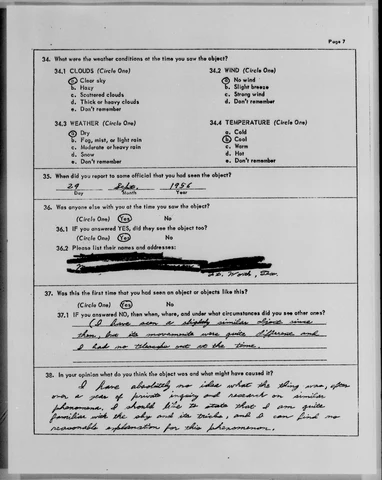 Page 7
34. What were the weather conditions at the time you saw the object?
34.1 CLOUDS (Circle One) 34.2 WIND (Circle One)
a. Clear sky a. No wind
b. Hazy b. Slight breeze
c. Scattered clouds c. Strong wind
d. Thick or heavy clouds d. Don't remember
e. Don't remember
34.3 WEATHER (Circle One) 34.4 TEMPERATURE (Circle One)
a. Dry a. Cold
b. Fog, mist, or light rain b. Cool
c. Moderate or heavy rain c. Warm
d. Snow d. Hot
e. Don't remember e. Don't remember
35. When did you report to some official that you had seen the object?
29 Sept. 1956
Day Month Year
36. Was anyone else with you at the time you saw the object?
(Circle One) Yes No
36.1 IF you answered YES, did they see the object too?
(Circle One) Yes No
36.2 Please list their names and addresses:
Ft. Worth, Tex.
37. Was this the first time that you had seen an object or objects like this?
(Circle One) Yes No
37.1 IF you answered NO, then when, where, and under what circumstances did you see other ones?
(I have seen a slightly similar object since
then, but its movements were quite difference and
I had no telescope out at the time.
38. In your opinion what do you think the object was and what might have caused it?
I have absolutely no idea what the thing was, after
over a year of private inquiry and research on similar
phenomena. I should like to state that I am quite
familiar with the sky and its tricks, and I can find no
reasonable explanation for this phenomenon.